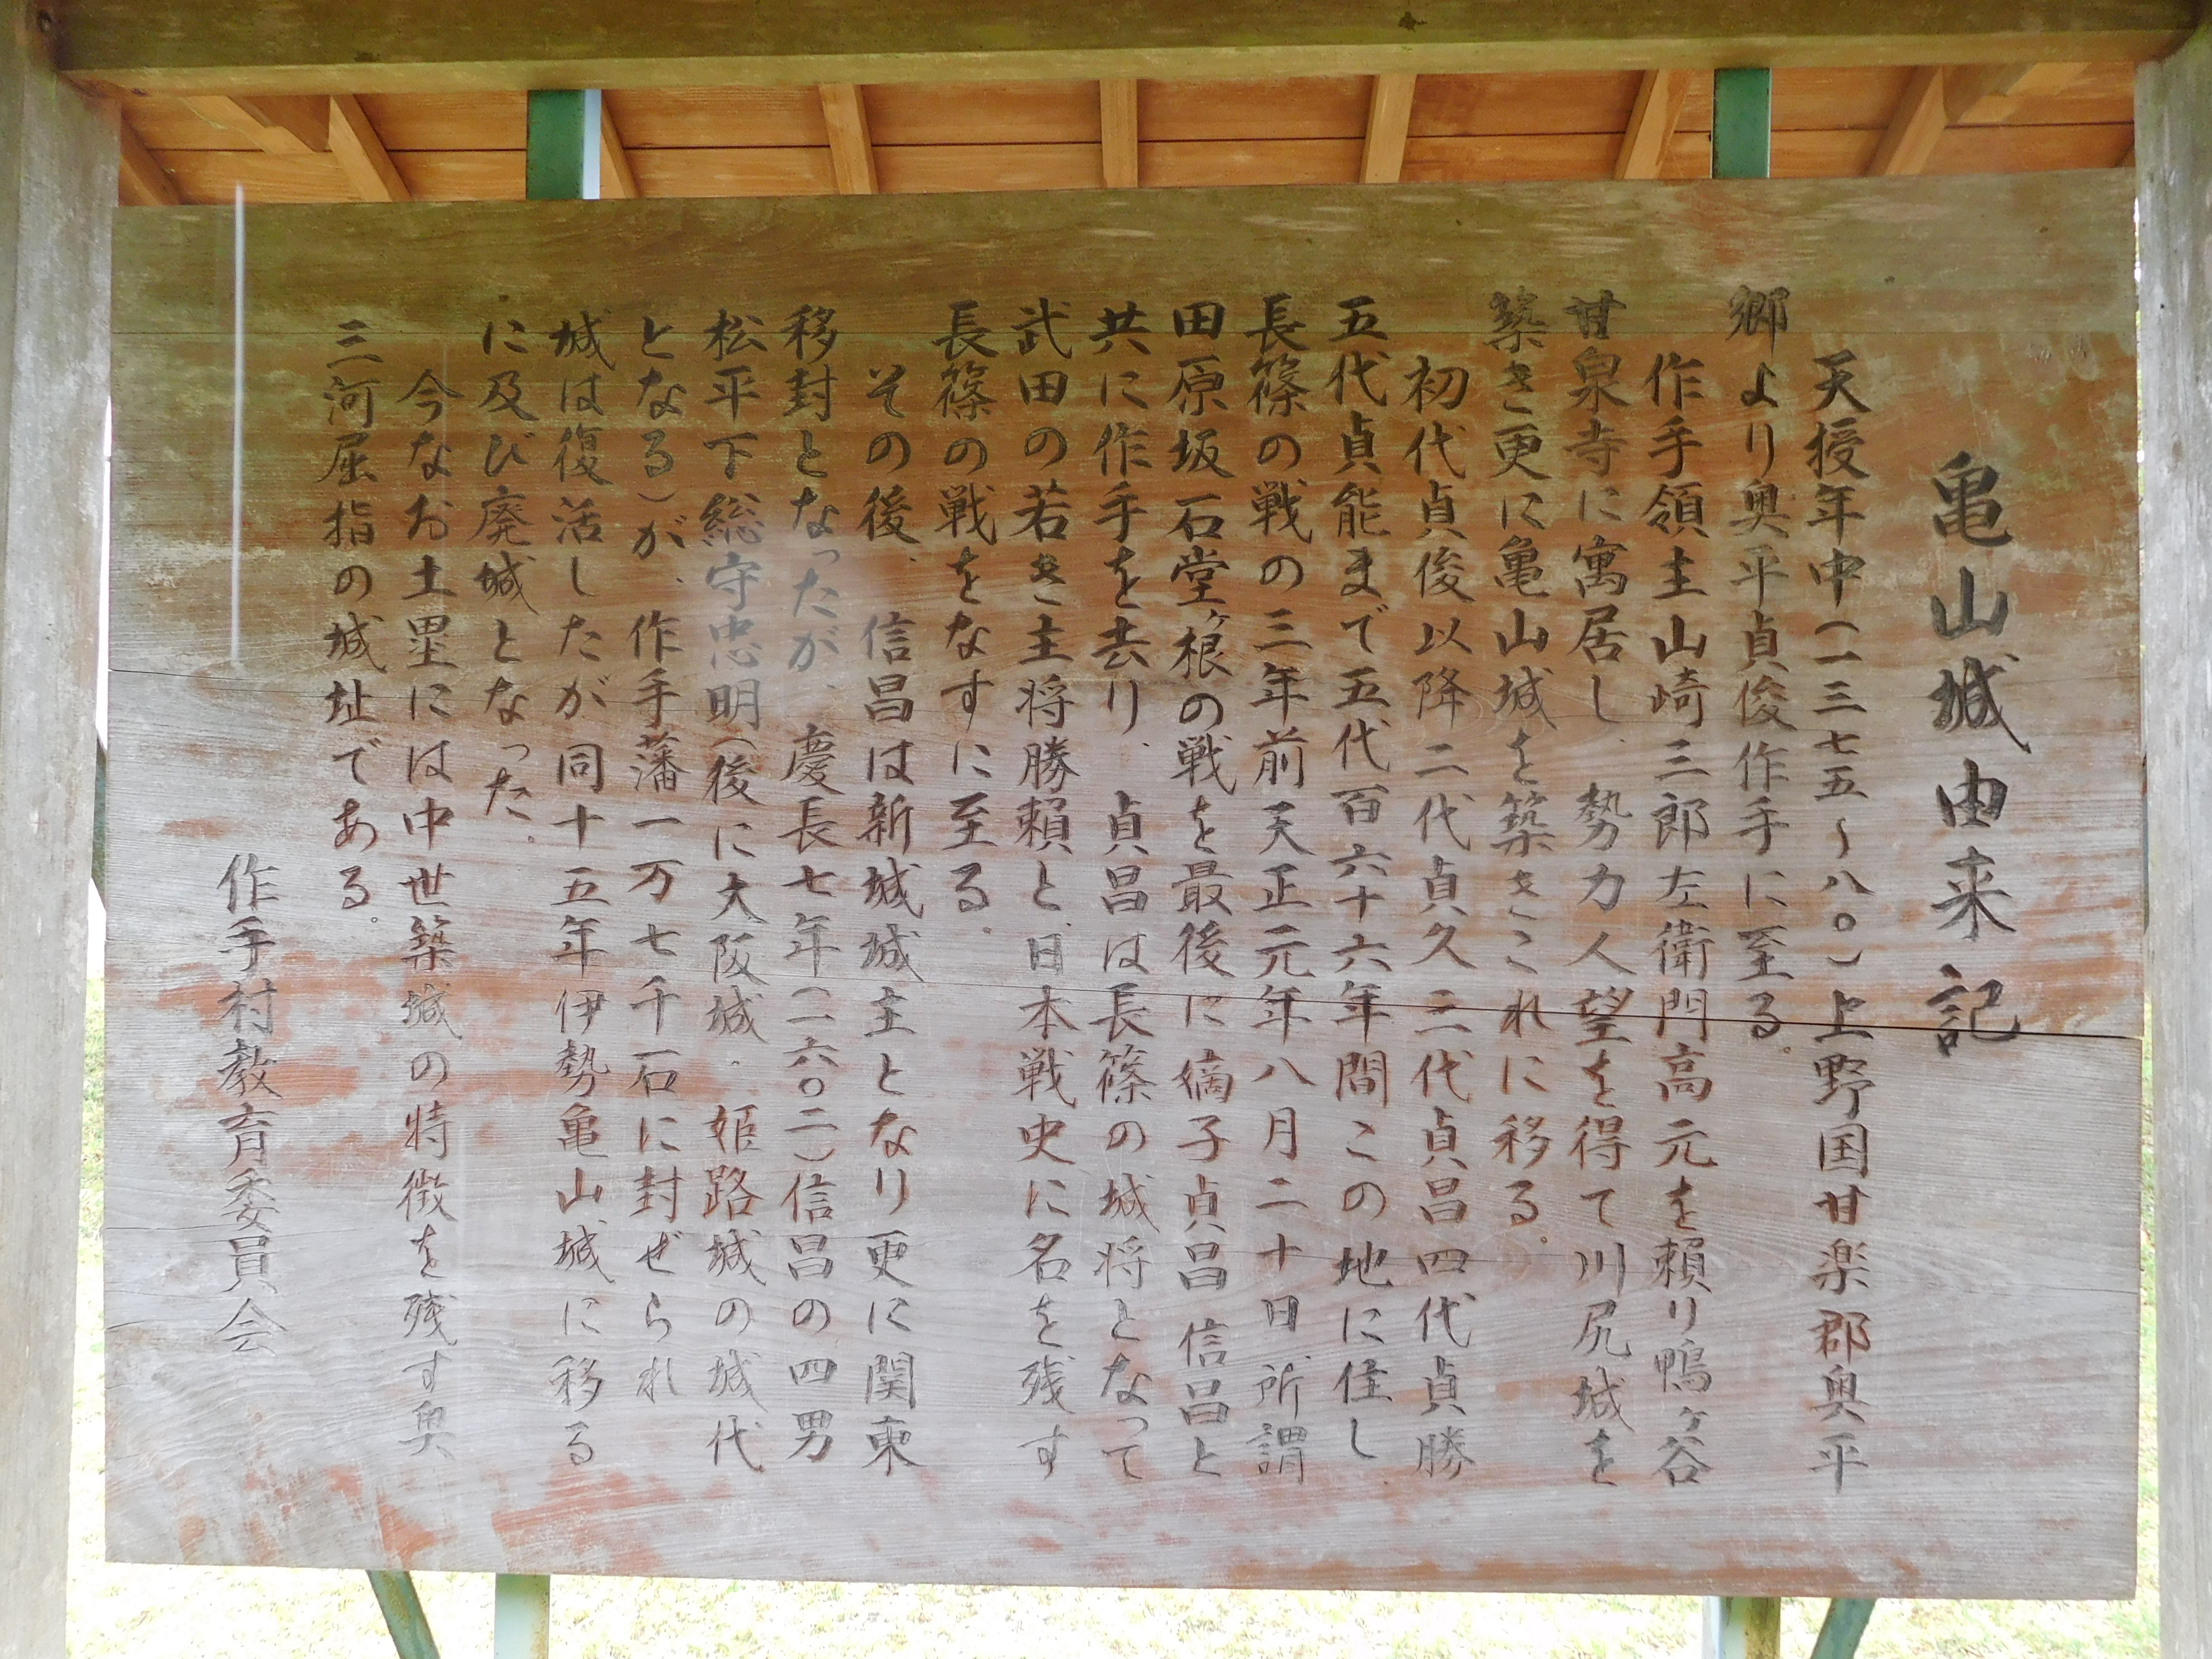 亀山城由来記
天授年中(一三七五～八〇)上野国甘楽郡奥平
郷より奥平貞俊作手に至る。
作手領主山崎三郎左衛門高元を頼り鴨ヶ谷
甘泉寺に寓居し、勢力人望を得て川尻城を
築き更に亀山城を築きこれに移る。
初代貞俊以降二代貞久三代貞昌四代貞勝
五代貞能まで五代百六十六年間この地に住し、
長篠の戦の三年前天正元年八月二十日所謂
田原坂石堂ヶ根の戦を最後に嫡子貞昌信昌と
共に作手を去り、貞昌は長篠の城将となって
武田の若き主将勝頼と、日本戦史に名を残す
長篠の戦をなすに至る。
その後、信昌は新城城主となり更に関東
移封となったが、慶長七年(一六〇二)信昌の四男
松平下総守忠明(後に大阪城・姫路城の城代
となる)が、作手藩一万七千石に封ぜられ
城は復活したが同十五年伊勢亀山城に移る
に及び廃城となった。
今なお土塁には中世築城の特徴を残す奥
三河屈指の城址である。
作手村教育委員会